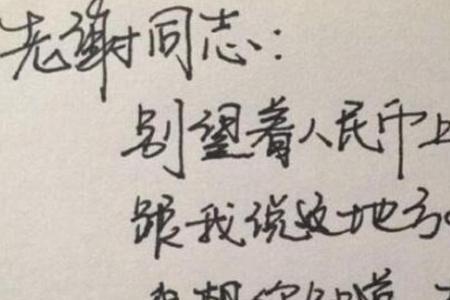 老谢同志:
别望着人民币上
跟我说这地方
想你知道